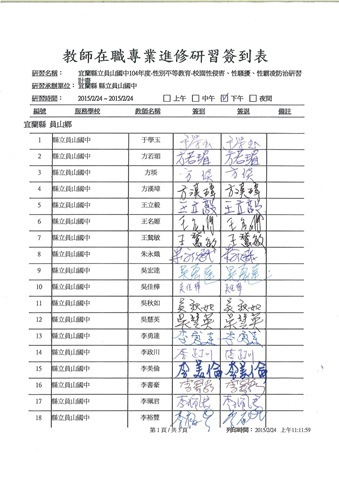 教師在職專業進修研習簽到表
研習名稱： 宜蘭縣立員山國中104年度-性別平等教育-校園性侵害、性騷擾、性霸凌防治研習計畫
研習承辦單位： 宜蘭縣 縣立員山國中
研習時間： 2015/2/24 ~ 2015/2/24 □上午 □中午 ☑下午 □夜間
編號 服務學校 教師名稱 簽到 簽退 備註
宜蘭縣 員山鄉
1 縣立員山國中 于學玉 于學玉 于學玉
2 縣立員山國中 方若瑂 方若瑂 方若瑂
3 縣立員山國中 方埮 方埮 方埮
4 縣立員山國中 方漢瑋 方漢瑋 方漢瑋
5 縣立員山國中 王立毅 王立毅 王立毅
6 縣立員山國中 王名媚
7 縣立員山國中 王鶯敏 王鶯敏 王鶯敏
8 縣立員山國中 朱永鐵
9 縣立員山國中 吳宏達 吳宏達 吳宏達
10 縣立員山國中 吳佳樺 吳佳樺 吳佳樺
11 縣立員山國中 吳秋如 吳秋如 吳秋如
12 縣立員山國中 吳慧英 吳慧英 吳慧英
13 縣立員山國中 李勇達 李勇達 李勇達
14 縣立員山國中 李政川 李政川 李政川
15 縣立員山國中 李美倫 李美倫 李美倫
16 縣立員山國中 李書豪 李書豪 李書豪
17 縣立員山國中 李珮君 李珮君 李珮君
18 縣立員山國中 李裕豐
第 1 頁 / 共 5 頁 列印時間：2015/2/24 上午11:11:59